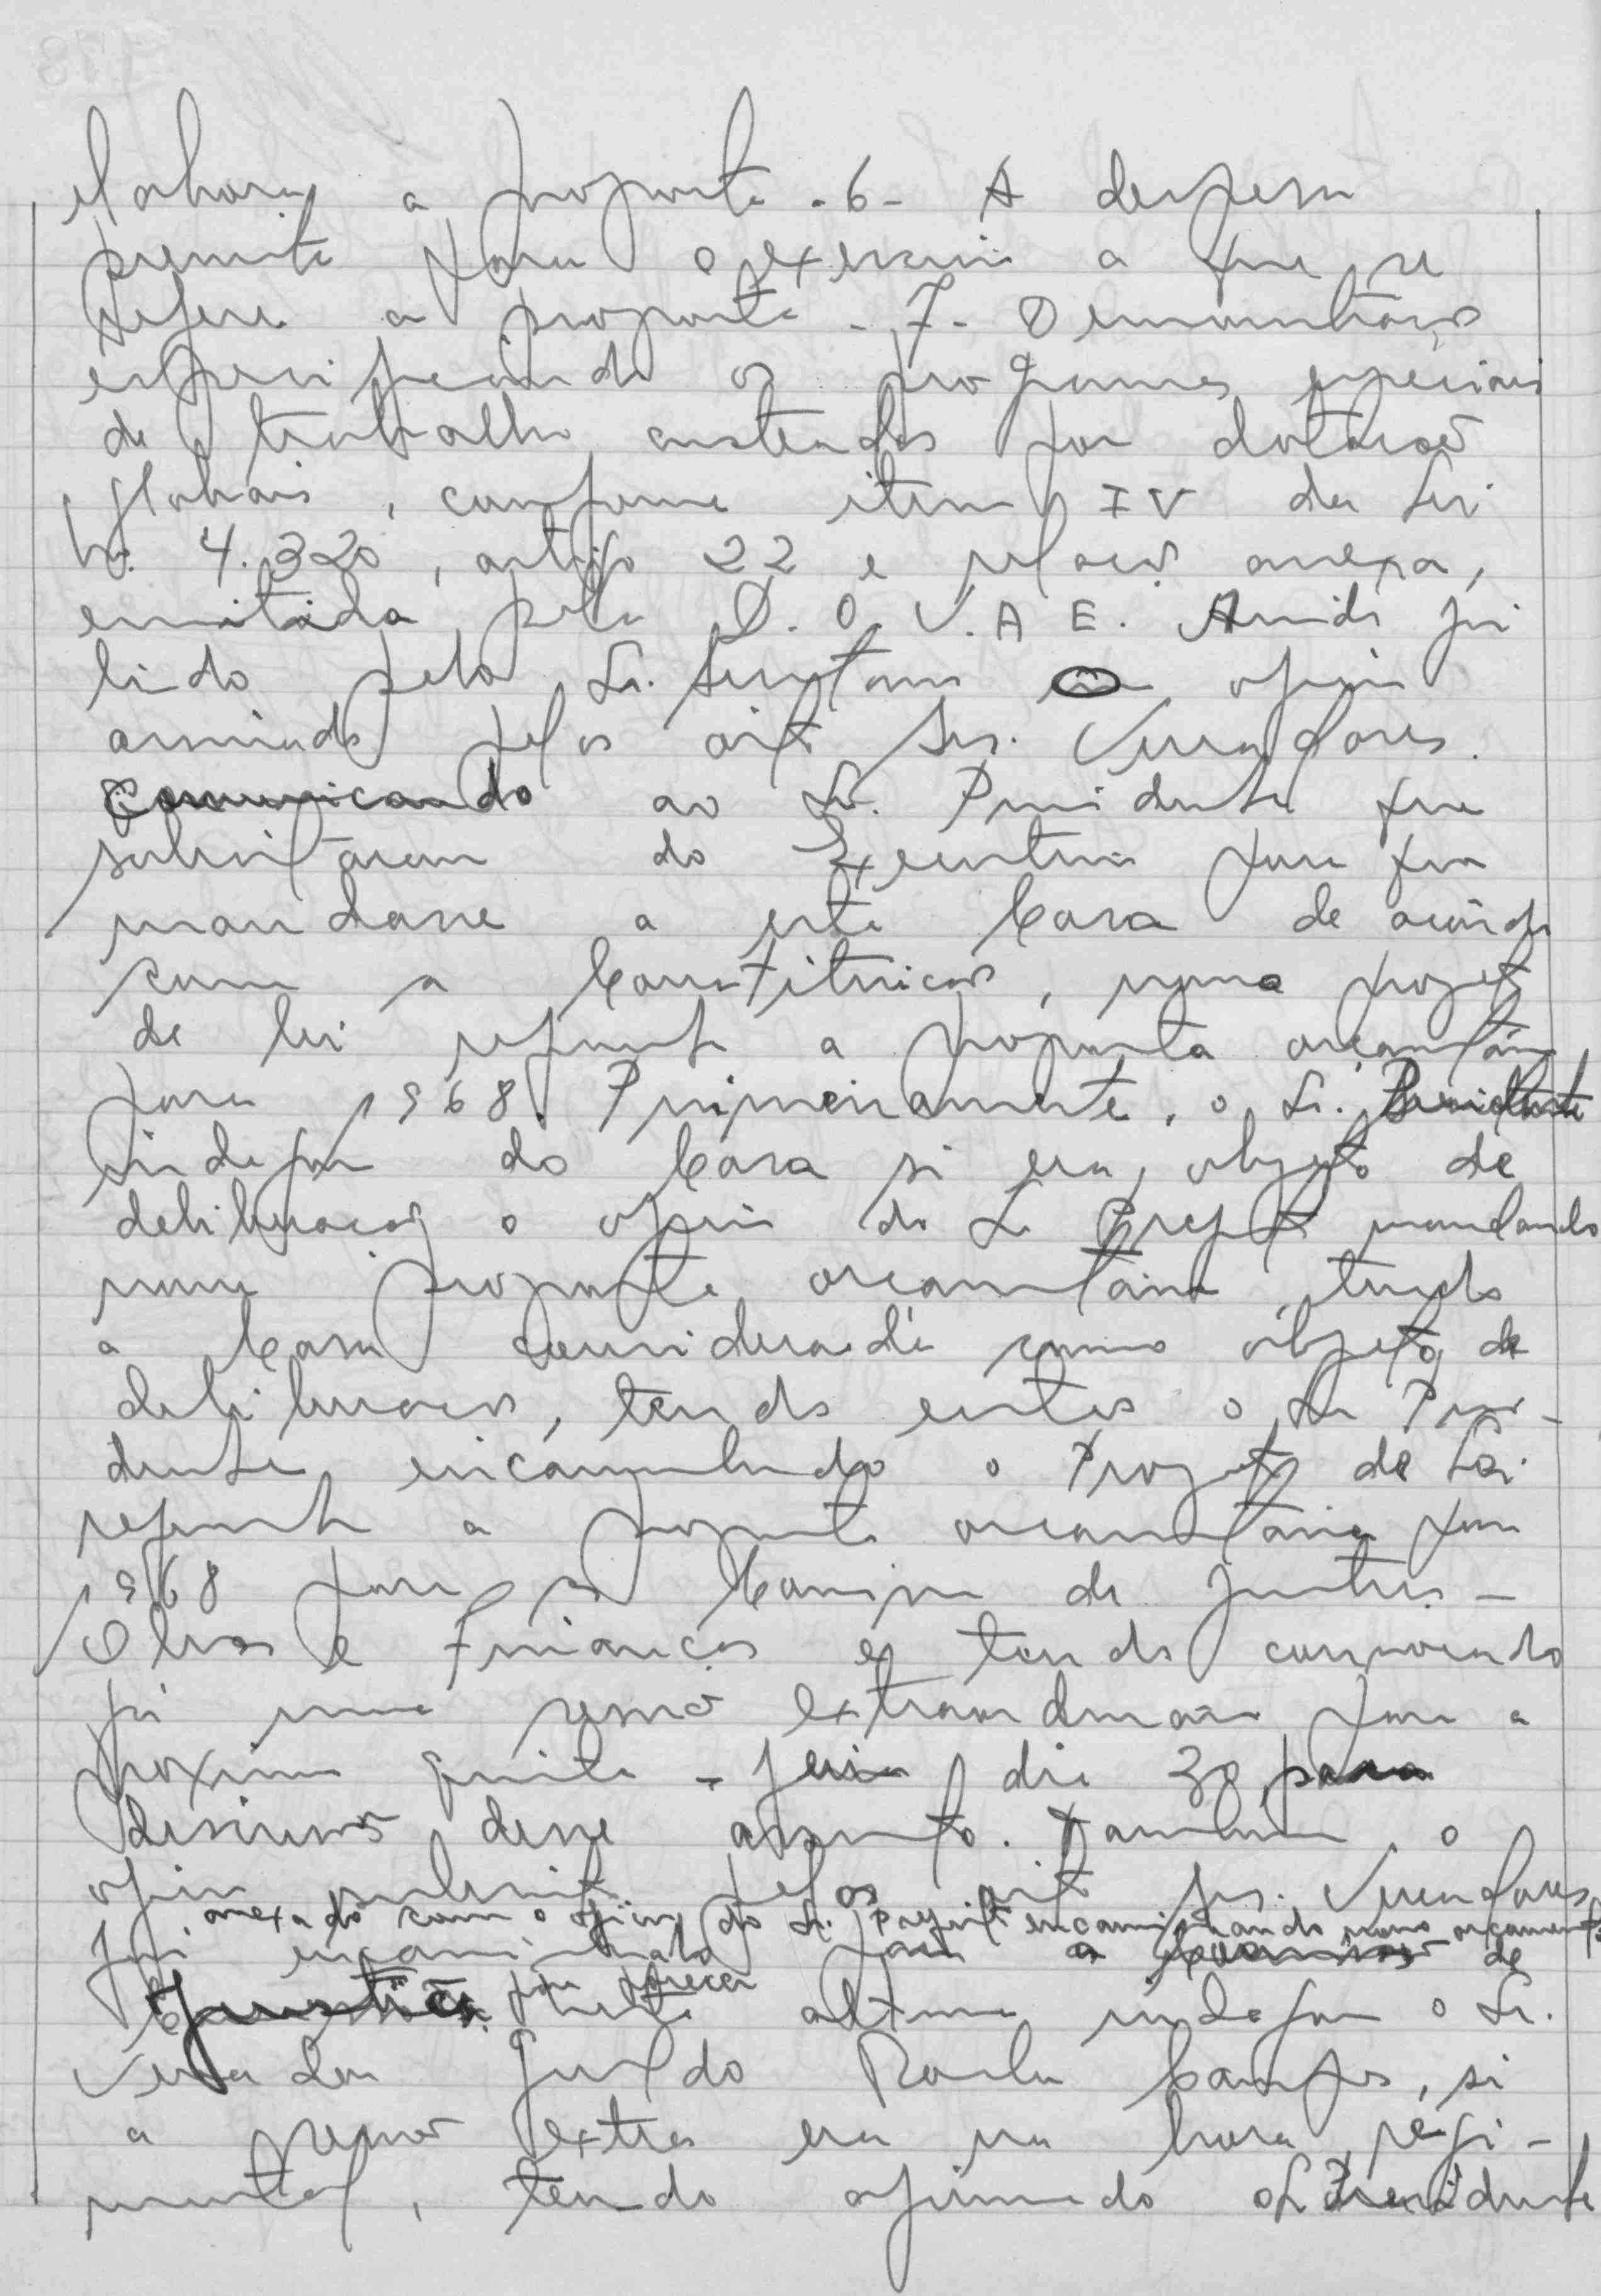 elaborou a proposta - 6 - A despesa
prevista para o exercicio a que se
refere a proposta - 7 - Demonstração
especificando os programas especiais
de trabalho custeados por dotações
globais, conforme item IV da Lei
nº 4.320, artigo 22 e relação anexa,
emitida pela D.O.V.A E. Ainda foi
lido pelo Sr. Secretario oficio
assinado pelos oito Srs. Vereadores.
Comunicando ao Sr. Presidente que
solicitaram do Executivo para que
mandasse a esta Casa de acôrdo
com a Constituicao, novo projeto
de lei referente a proposta orcamentária
para 1968. Primeiramente, o Sr. Presidente
indagou da Casa si era objeto de
deliberacao o oficio do Sr Prefeito mandando
nova proposta orcamentária, tendo
a Casa considerado como objeto de
deliberacao, tendo então o Sr Presi-
dente encaminhado o Projeto de Lei
referente a proposta orcamentária para
1968 para a Comissão de Justica -
Obras e Financas e tendo convocado
já uma sessão extraordinaria para a
proxima quinta - feira dia 30 para
discussão desse assunto. Tambem o
oficio pelos oito Srs. Vereadores
anexado com o oficio do Sr. Prefeito encaminhando novo orçamento
foi encaminhado para a Comissão de
Justiça para parecer
Nesta altura indagou o Sr.
Vereador Geraldo Rocha Campos, si
a sessão extra era na hora regi-
mental, tendo afirmado o Sr Presidente